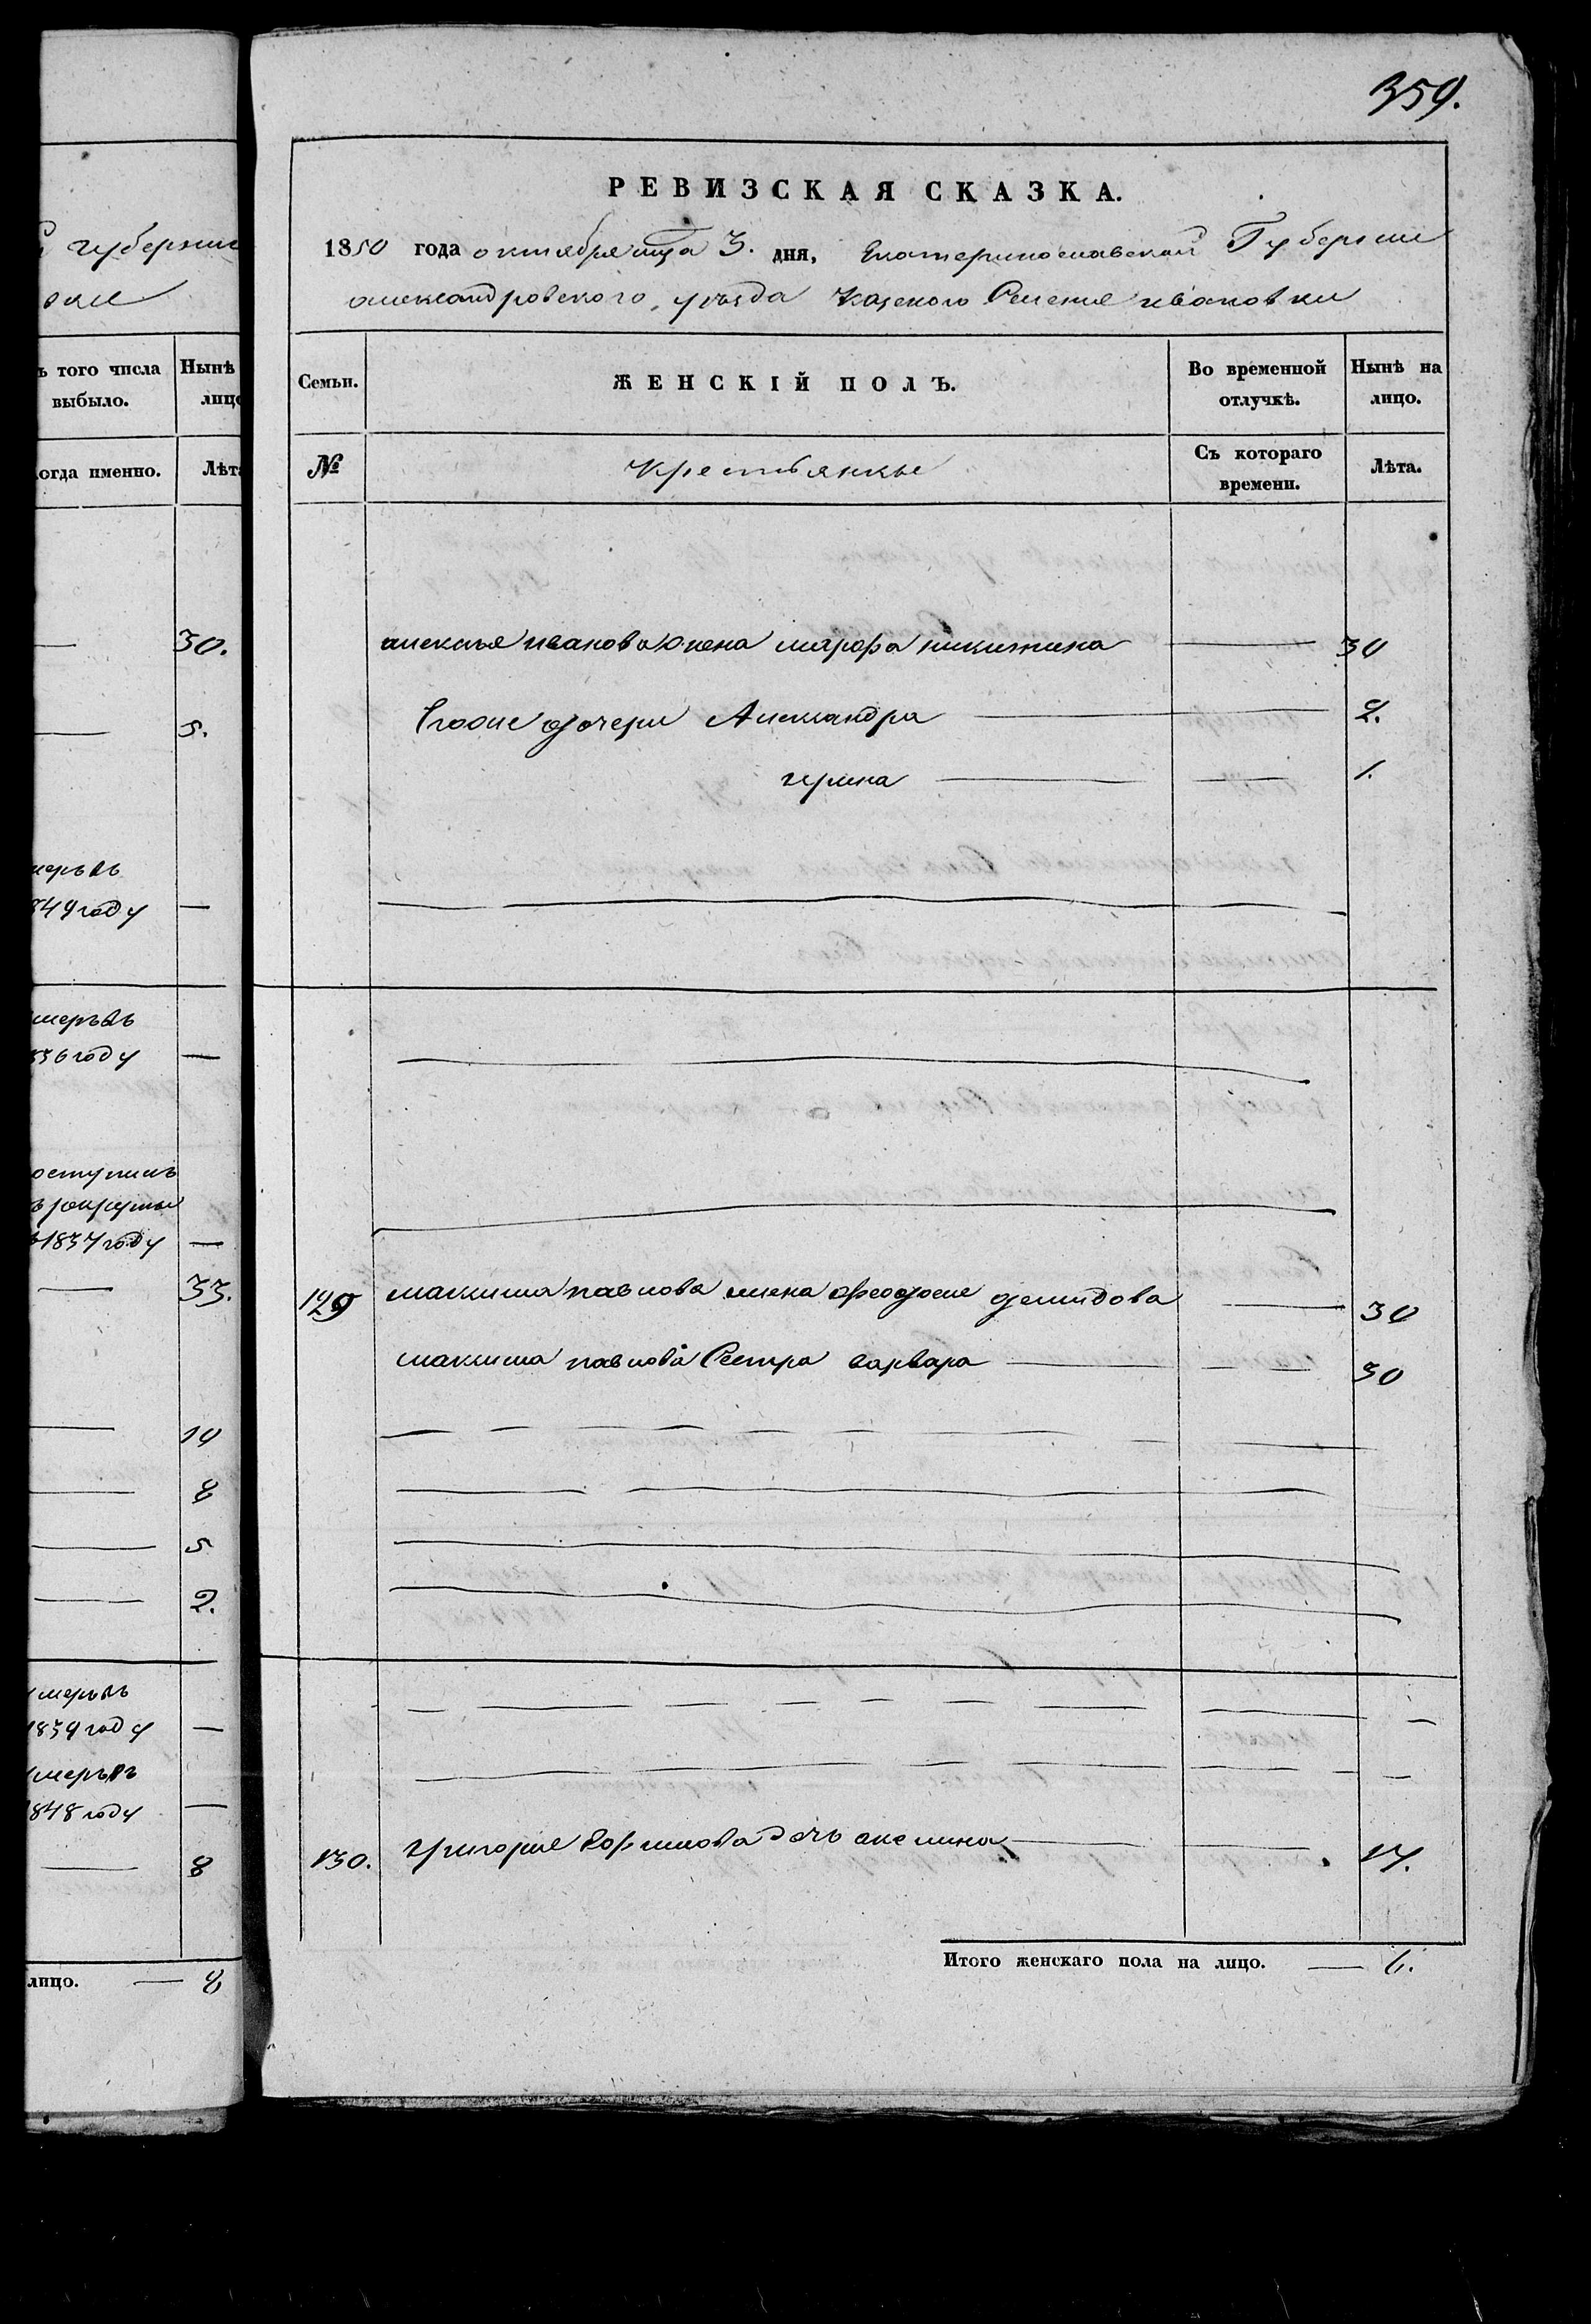 359.
РЕВИЗСКАЯ СКАЗКА.
1850 года октября мца 3. дня, Екатеринославской Губернии
александровского, уезда Казеного Селения ивановки
Семьи.
ЖЕНСКІЙ ПОЛЪ.
Во временной отлучкѣ.
Нынѣ на лицо.
№
Крестьянкы
Съ котораго времени.
Лѣта.
алексия иванова жена марфа никитина 30
Его дочери Александра 2.
ирина 1.
129 максима павлова жена феодосия демидова 30
максима павлова Сестра варвара 30
130. григория дочь акелина 17.
Итого женскаго пола на лицо. 6.
губернии
ъ того числа выбыло.
Нынѣ лицо
когда именно.
Лѣта
30.
5.
меръ въ
849 году
меръ въ
836 году
оступилъ
ъ рекруты
в 1837 году
33.
10
8
5
2.
умеръ въ
1839 году
умеръ въ
1848 году
8
лицо. 8